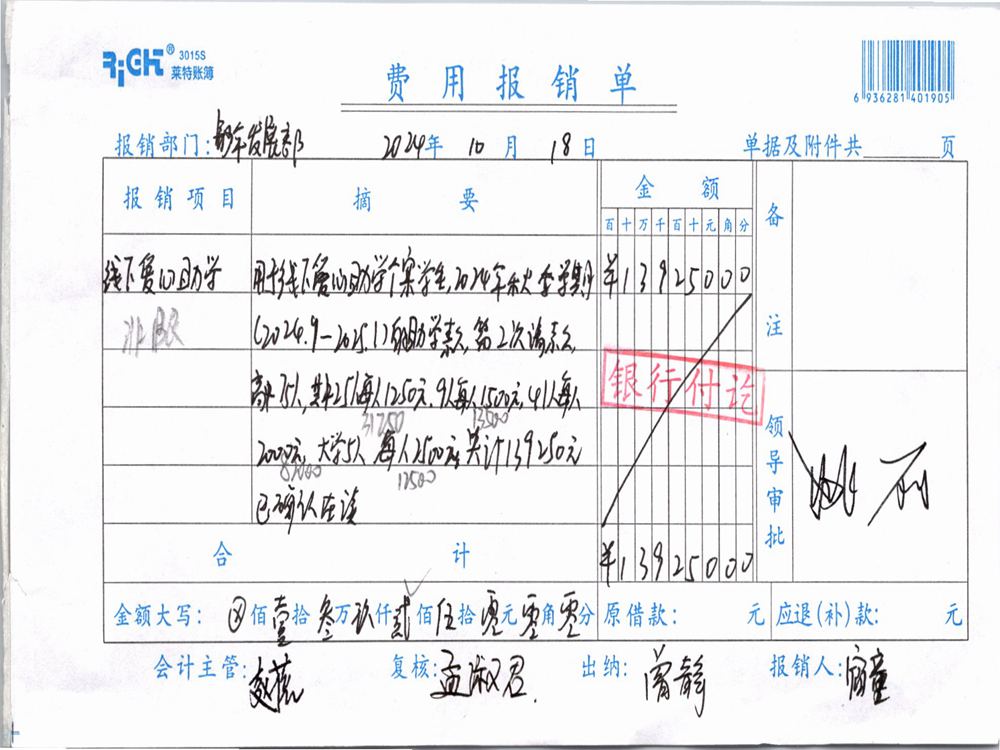 RiGHT® 3015S
莱特账簿
费用报销单
6 936281 401905
报销部门: 发展部 2024年 10月 18日 单据及附件共 页
报销项目 摘要 金额 备注
百十万千百十元角分
线下爱心助学 用于线下爱心助学个案学生,2024年秋季学期 ¥13925000
(2024.9-2025.1)的助学款,第2次请款,
银行付讫
高中75人,其中25人每人1250元,9人每人1500元,41人每人
31250 13500
2000元,大学5人每人2500元,共计139250元
82000 12500
已确认在读
领导审批
合计 ¥13925000
金额大写: ⊗佰壹拾叁万玖仟贰佰伍拾零元零角零分 原借款: 元 应退(补)款: 元
会计主管: 复核: 孟淑君 出纳: 静 报销人: 童